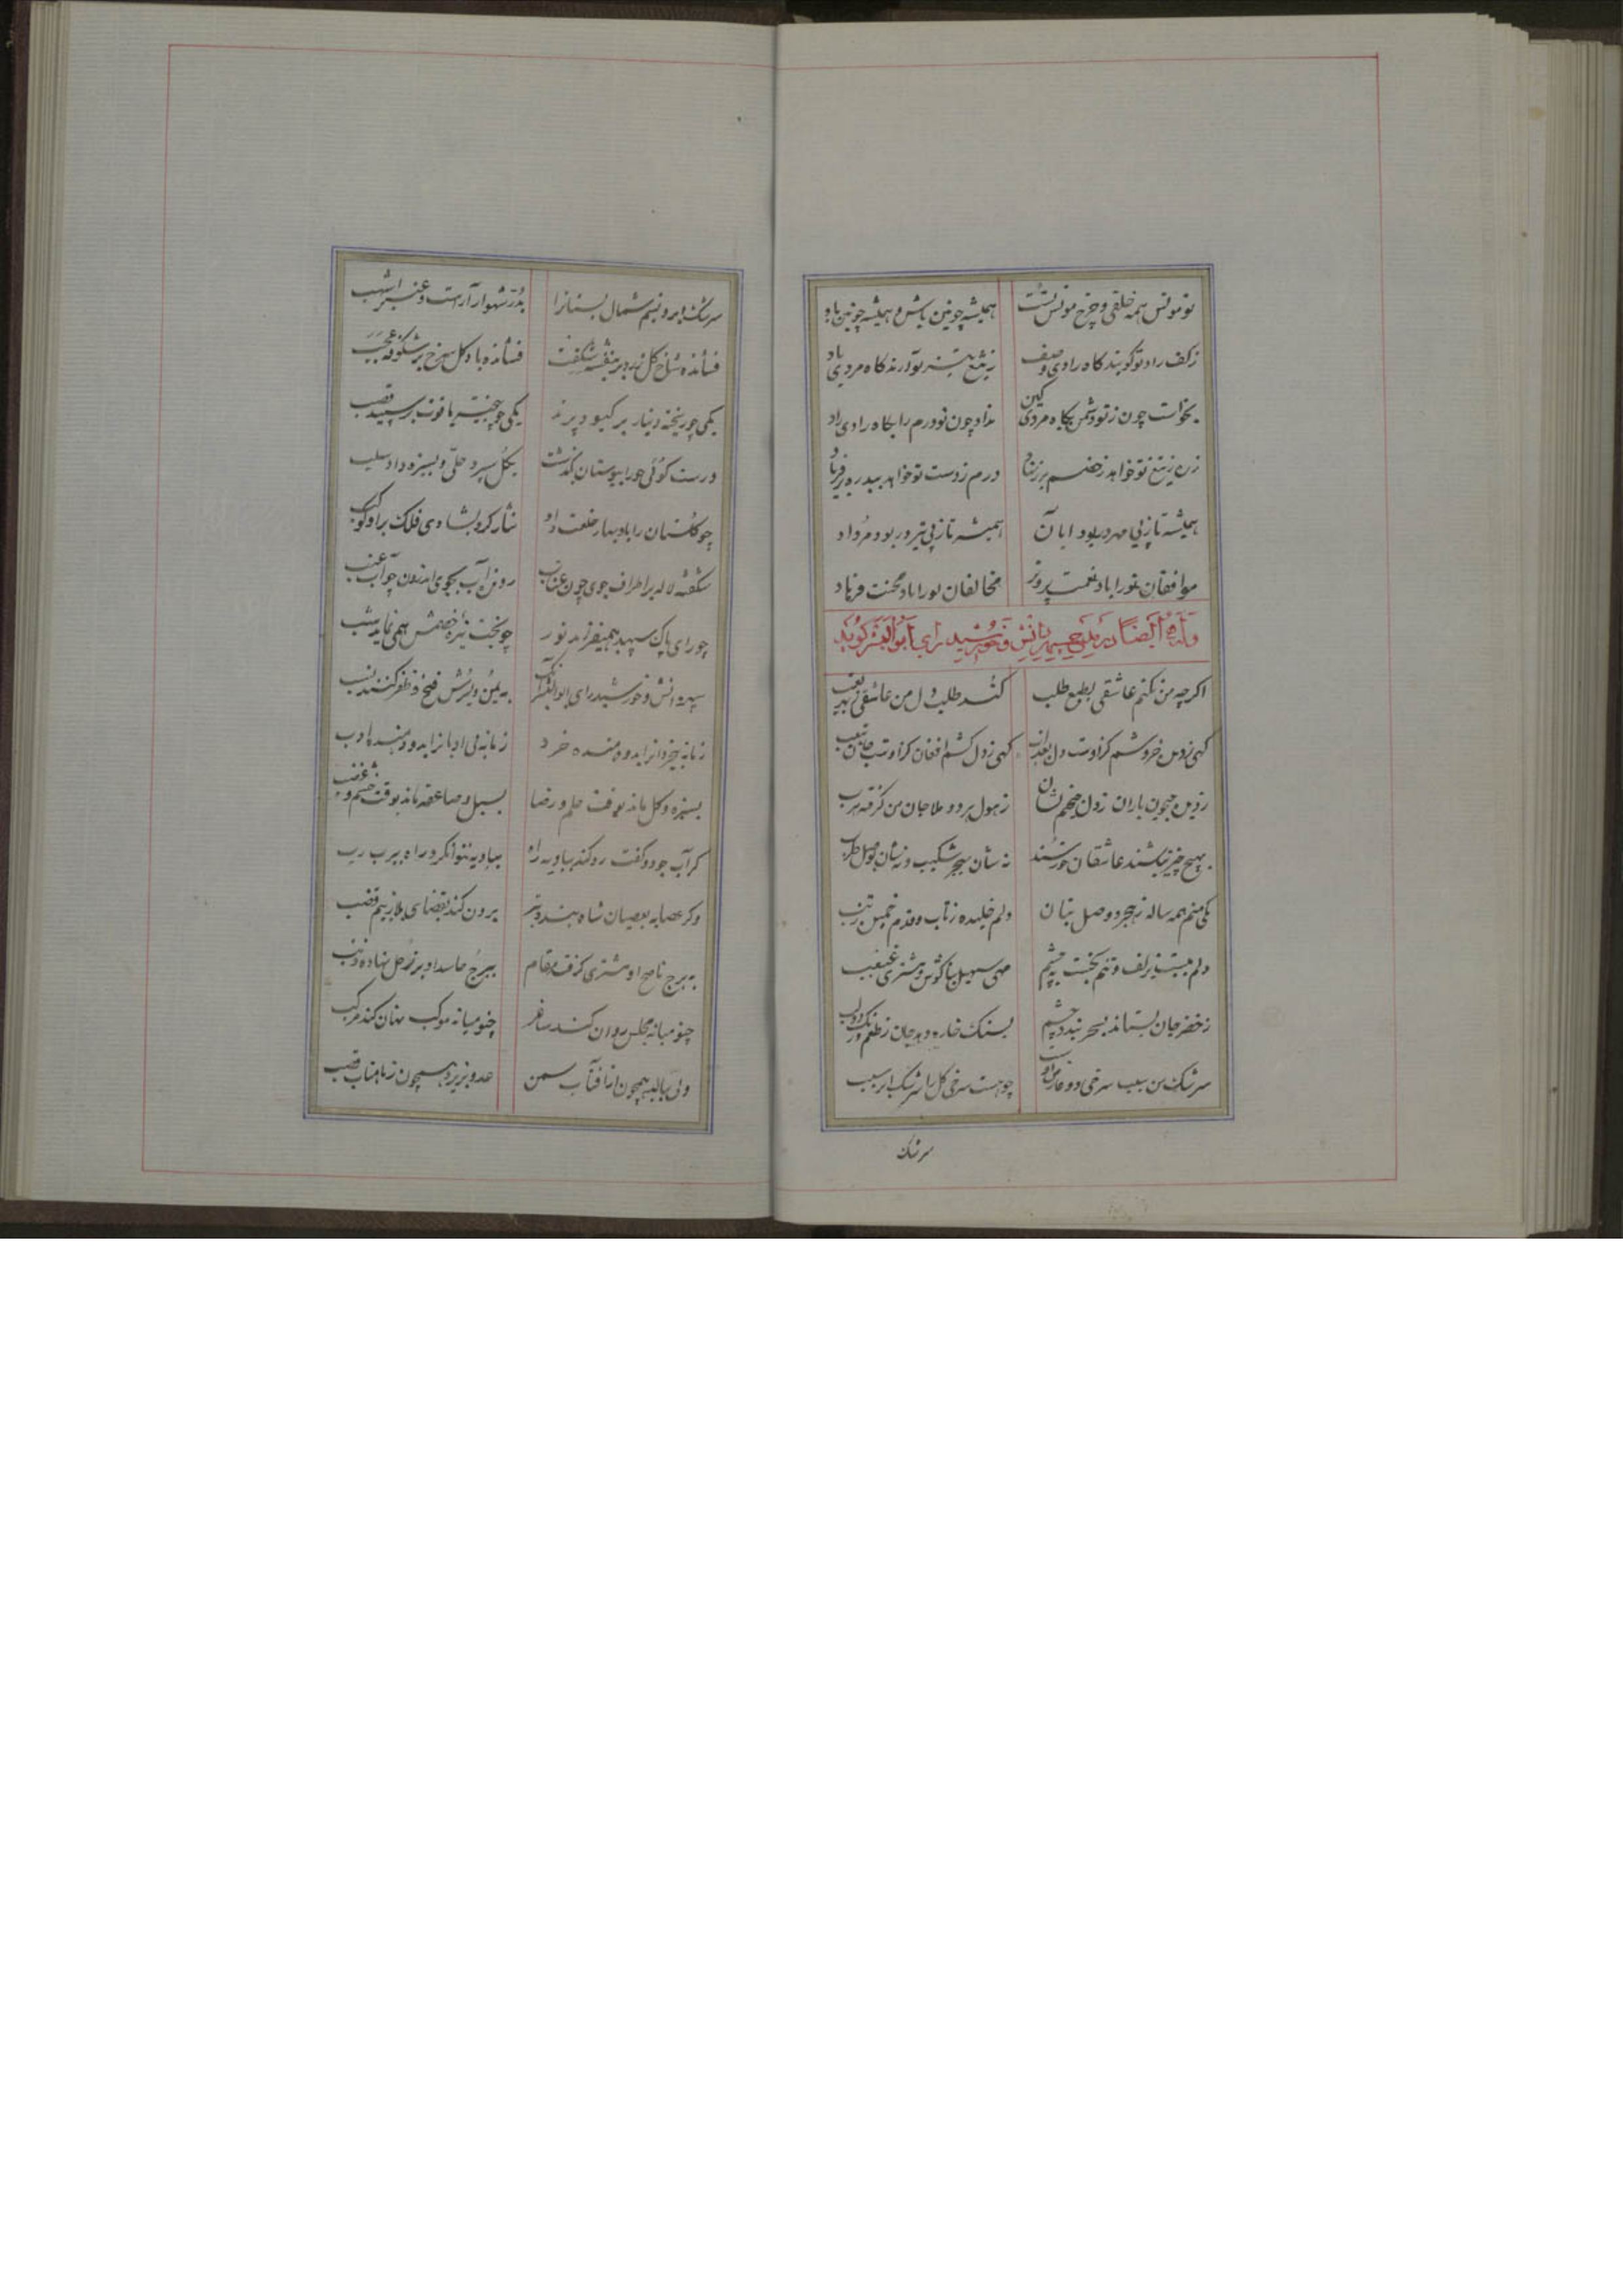 تو مونس همه خلقی و چرخ مونس تست همیشه چونین باش و همیشه چونین باد
ز کف راد تو گویند گاه رادی وصف ز تیغ تیز تو آرند گاه مردی یاد
بخواست چون ز تو دشمن بگاه مردی کین نداد چون تو درم را بگاه رادی داد
زره ز تیغ تو خواهد ز خصم بر درم ز دست تو خواهد ببدره بر فریاد
همیشه تا ز پی مهر در بود ابان همیشه تا ز پی تیر در بود مرداد
موافقان تو را باد نعمت پرویز مخالفان تو را باد محنت فرهاد
وله ایضاً در مدح سپهر دانش و خورشید رای ابوالفرج گوید
اگر چه من نکنم عاشقی بطبع طلب کند طلب دل من عاشقی ز بهر تعب
گهی ز دیده خروشم کزاوست دل بعذاب گهی ز دل کشم افغان کزاوست جان بتعب
ز دیده همچون باران ز دل جهنم نشان ز هول هر دو بلا جان من گرفته هرب
بهیچ چیز نباشند عاشقان خرسند نه شان بهجر شکیب و نه شان بوصل طرب
یکی منم همه ساله ز هجر و وصل بتان دلم خلیده ز تاب و قدم خمیده ز تب
دلم ببست بزلف و تنم بخست بچشم مهی سهیل بناگوش و مشتری غبغب
ز خضر جان بستاند بسحر بند دو چشم بسنگ خاره دهد جان ز طعم و رنگ دو لب
سرشک من سبب سرخی دو عارض اوست چو هست سرخی گل را سرشک ابر سبب
سرشک
سرشک ابر و نسیم شمال بستانرا بدر شهوار آراست و عنبر اشهب
فشانده شاخ گل زرد بر بنفشه شگفت فشانده باد گل سرخ بر شکوفه عجب
یکی چو ریخته دینار بر کبود پرند یکی چو بیخته یاقوت بر سپید قصب
درست گوئی حورا ببوستان بگذشت بگل سپرد حلی و بسبزه داد سلب
چو گلستان را باد بهار خلعت داد نثار کرد بشادی فلک براو کوکب
شکفته لاله بر اطراف جوی چون عناب روان آب بجوی اندرون چو آب عنب
چو رای پاک سپهبد همیفزاید نور چو بخت تیره خصمش همی نماید شب
سپهر دانش و خورشید رای ابوالفرج آنک به یمن و یسرش فتح و ظفر کنند نسب
زمانه بیخرد از آید و دهنده خرد زمانه بی ادبانرا بد و دهنده ادب
بسبزه و گل ماند بوقت حلم و رضا بسیل و صاعقه ماند بوقت خشم و غضب
گر آب جود و گفت ره کند ببادیه راه ببادیه نتوان کرد راه ببرب رب
وگر عصا به بعصیان شاه بندد تیز برون کند بقضای بلا ز بیم قضب
به برج ناصح او مشتری گرفت مقام ببرج حاسد او بر زحل نهاده ذنب
چنو میانه مجلس روان کند ساغر چنو میانه موکب نهان کند مرکب
ولی ببالد همچون از آفتاب سمن عدو بریزد همچون ز ماهتاب قصب